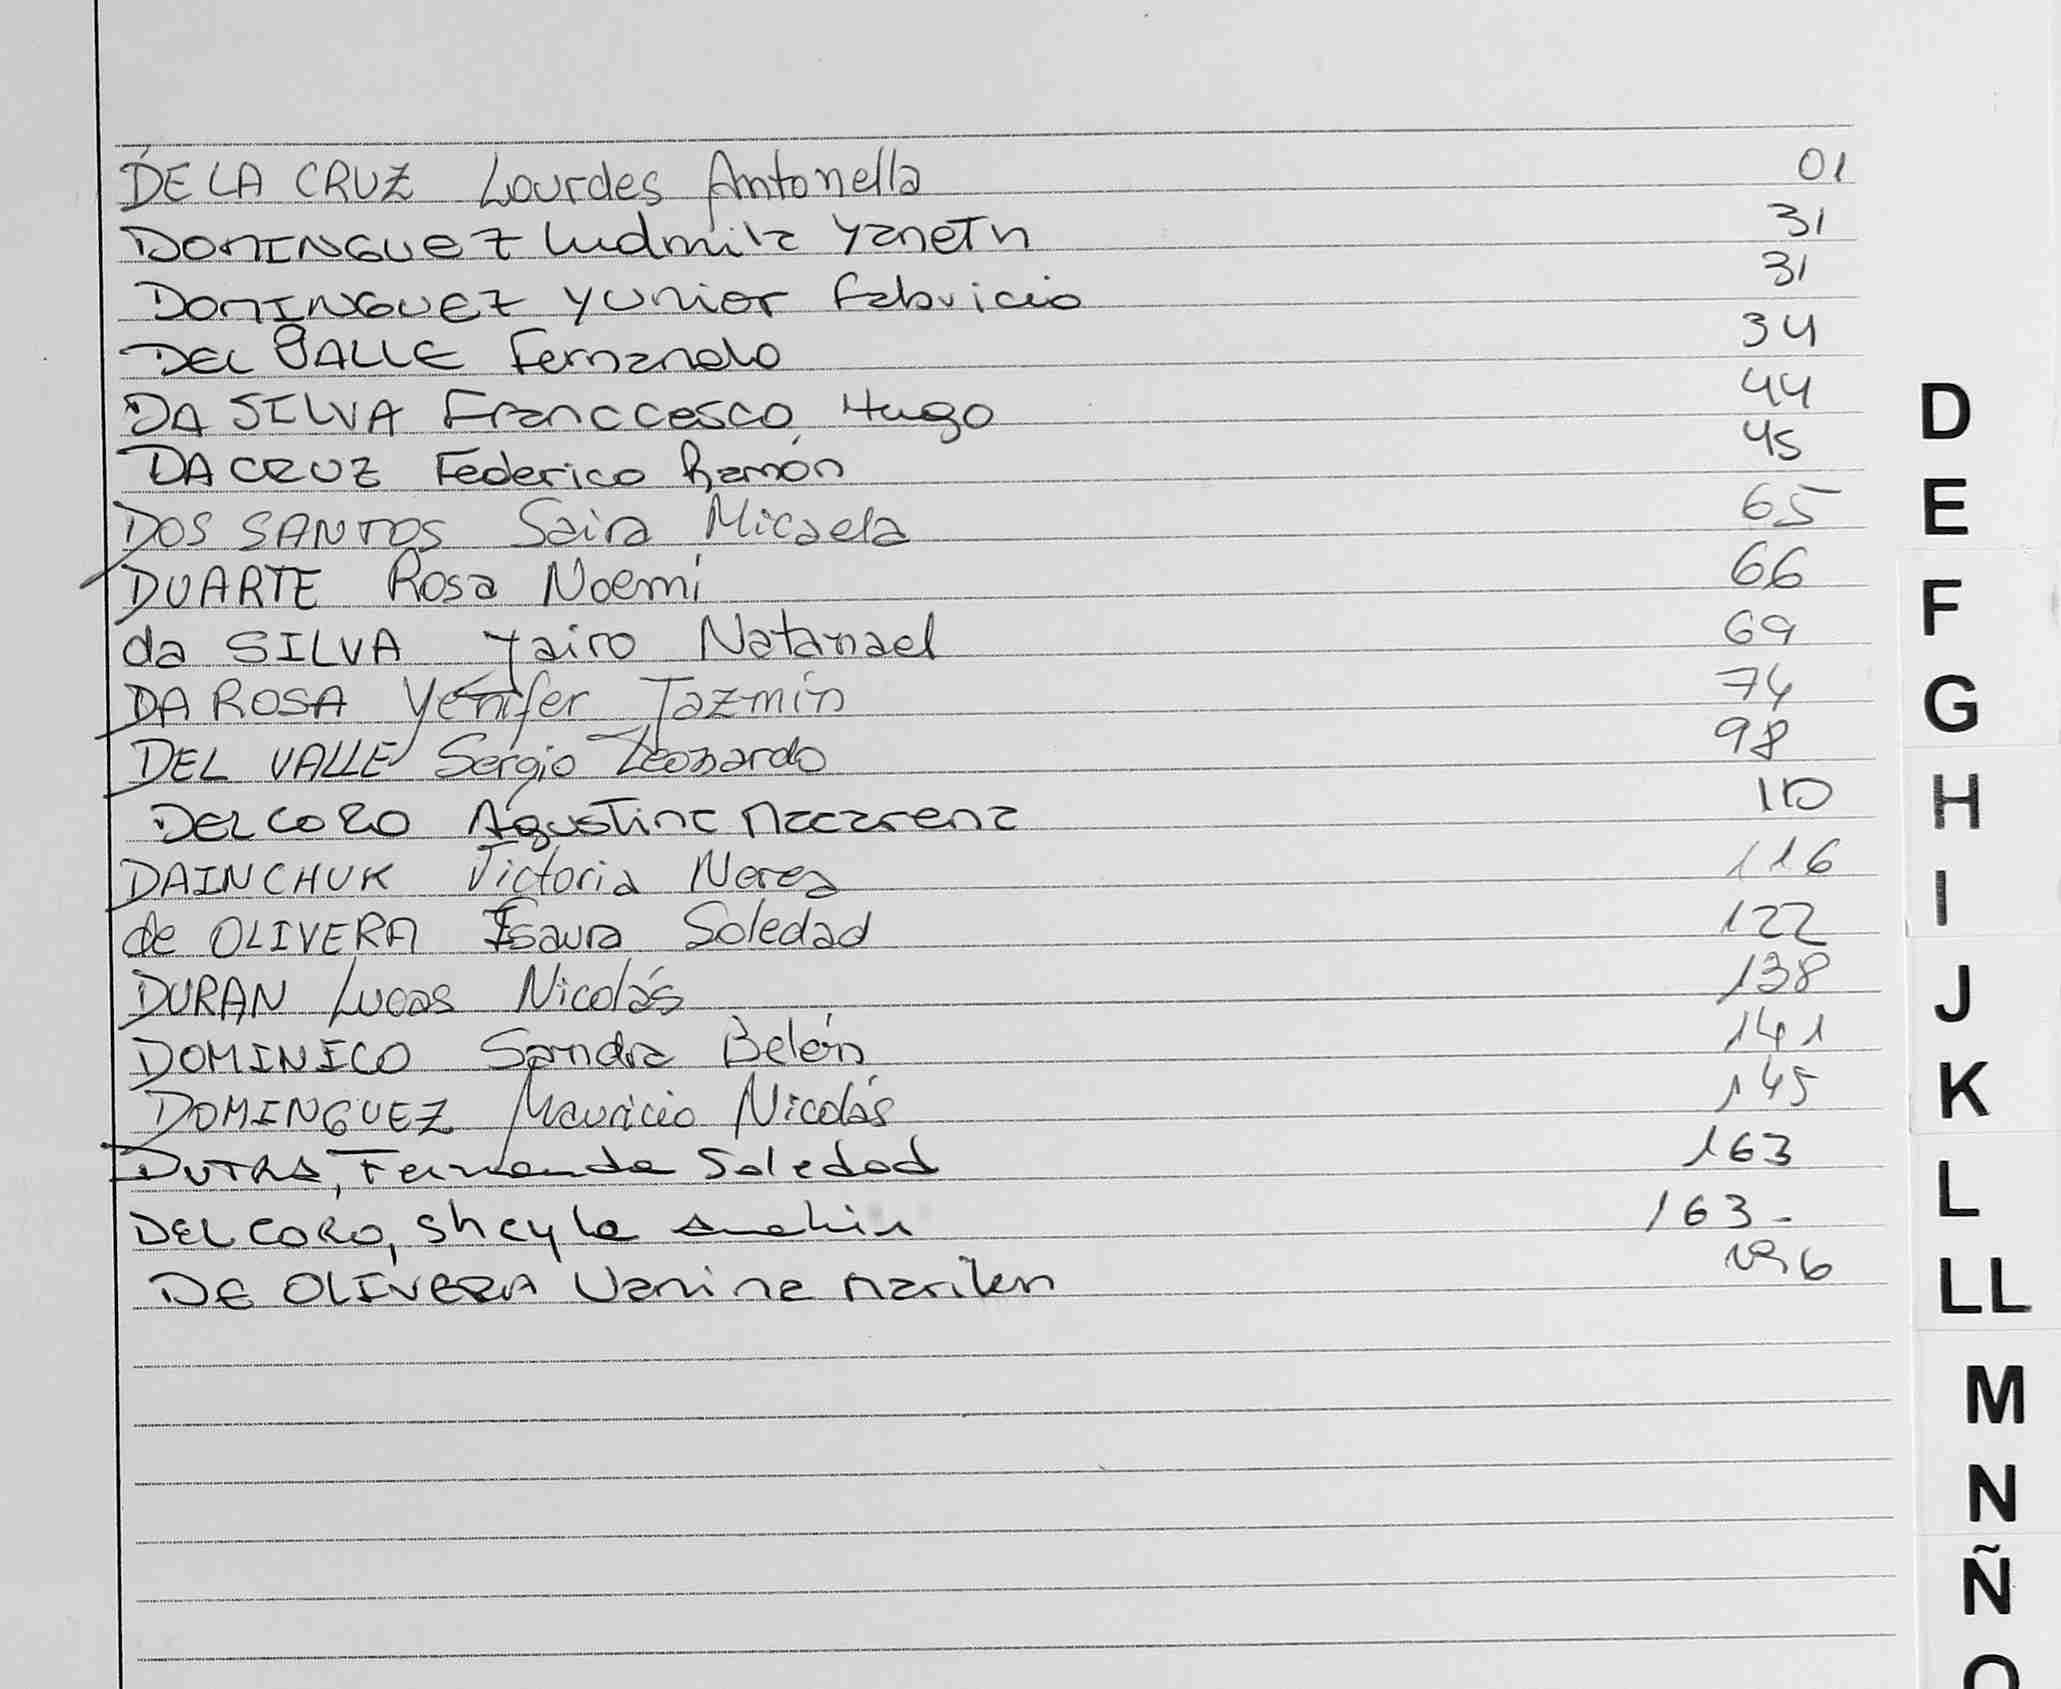 DE LA CRUZ Lourdes Antonella 01
DOMINGUEZ Ludmila Yaneth 31
DOMINGUEZ Yunior Fabricio 31
DEL VALLE Fernando 34
DA SILVA Franccesco Hugo 44
DA CRUZ Federico Ramón 45
DOS SANTOS Saira Micaela 65
DUARTE Rosa Noemí 66
da SILVA Yairo Natanael 69
DA ROSA Yenifer Jazmín 74
DEL VALLE Sergio Leonardo 98
DELCORO Agustina Macarena
DAINCHUK Victoria Nerea 116
de OLIVERA Isaura Soledad 122
DURAN Lucas Nicolás 138
DOMINICO Sandra Belén 141
DOMINGUEZ Mauricio Nicolás 145
DUTRA, Fernanda Soledad 163
DELCORO, Sheyla Anahin 163-
DE OLIVERA Vanina Marilen 196
D
E
F
G
H
I
J
K
L
LL
M
N
Ñ
O